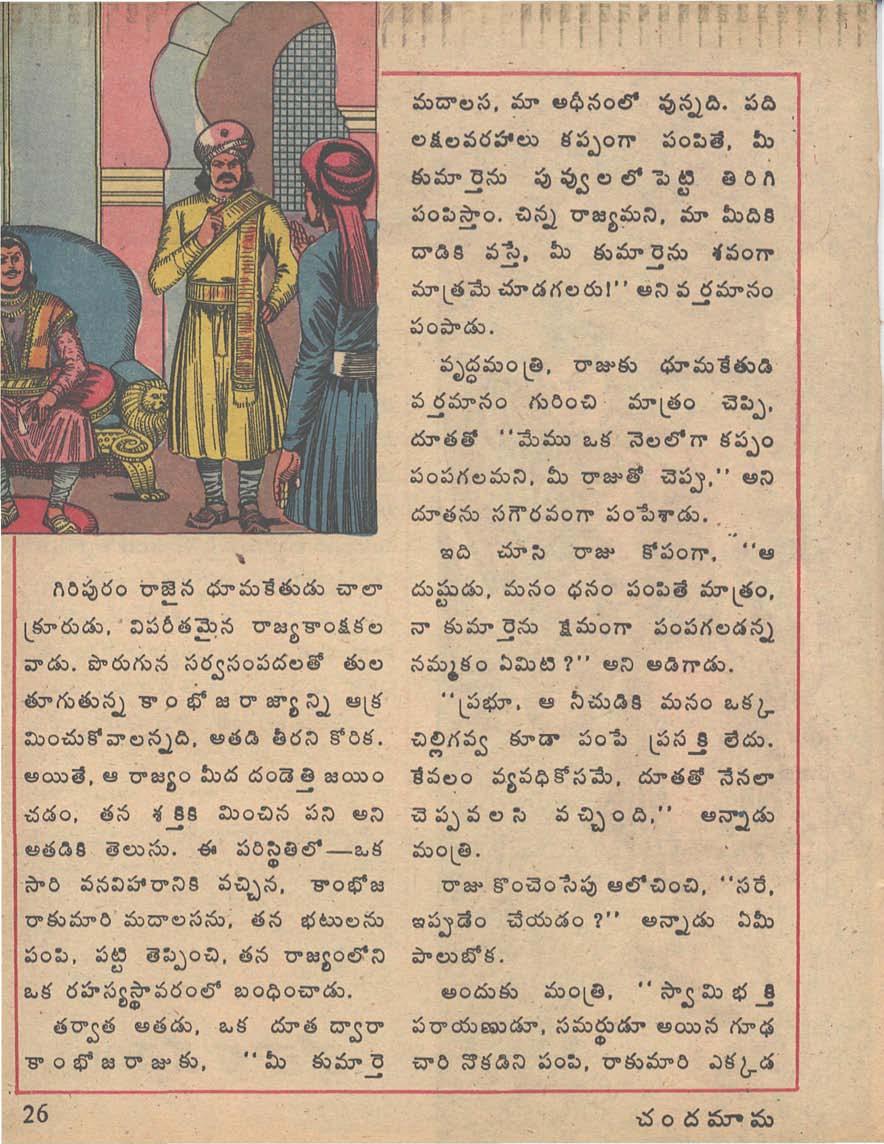 గిరిపురం రాజైన ధూమకేతుడు చాలా
క్రూరుడు, విపరీతమైన రాజ్యకాంక్షకల
వాడు. పొరుగున సర్వసంపదలతో తుల
తూగుతున్న కాంభోజరాజ్యాన్ని ఆక్ర
మించుకోవాలన్నది, అతడి తీరని కోరిక.
అయితే, ఆ రాజ్యం మీద దండెత్తి జయిం
చడం, తన శక్తికి మించిన పని అని
అతడికి తెలుసు. ఈ పరిస్థితిలో—ఒక
సారి వనవిహారానికి వచ్చిన, కాంభోజ
రాకుమారి మదాలసను, తన భటులను
పంపి, పట్టి తెప్పించి, తన రాజ్యంలోని
ఒక రహస్యస్థావరంలో బంధించాడు.
తర్వాత అతడు, ఒక దూత ద్వారా
కాంభోజరాజుకు, ‘‘మీ కుమార్తె
మదాలస, మా అధీనంలో వున్నది. పది
లక్షలవరహాలు కప్పంగా పంపితే, మీ
కుమార్తెను పువ్వులలో పెట్టి తిరిగి
పంపిస్తాం. చిన్న రాజ్యమని, మా మీదికి
దాడికి వస్తే, మీ కుమార్తెను శవంగా
మాత్రమే చూడగలరు!’’ అని వర్తమానం
పంపాడు.
వృద్ధమంత్రి, రాజుకు ధూమకేతుడి
వర్తమానం గురించి మాత్రం చెప్పి,
దూతతో ‘‘మేము ఒక నెలలోగా కప్పం
పంపగలమని, మీ రాజుతో చెప్పు,’’ అని
దూతను సగౌరవంగా పంపేశాడు.
ఇది చూసి రాజు కోపంగా, ‘‘ఆ
దుష్టుడు, మనం ధనం పంపితే మాత్రం,
నా కుమార్తెను క్షేమంగా పంపగలడన్న
నమ్మకం ఏమిటి?’’ అని అడిగాడు.
‘‘ప్రభూ, ఆ నీచుడికి మనం ఒక్క
చిల్లిగవ్వ కూడా పంపే ప్రసక్తి లేదు.
కేవలం వ్యవధికోసమే, దూతతో నేనలా
చెప్పవలసి వచ్చింది,’’ అన్నాడు
మంత్రి.
రాజు కొంచెంసేపు ఆలోచించి, ‘‘సరే,
ఇప్పుడేం చేయడం?’’ అన్నాడు ఏమీ
పాలుబోక.
అందుకు మంత్రి, ‘‘స్వామిభక్తి
పరాయణుడూ, సమర్థుడూ అయిన గూఢ
చారి నొకడిని పంపి, రాకుమారి ఎక్కడ
26
చందమామ